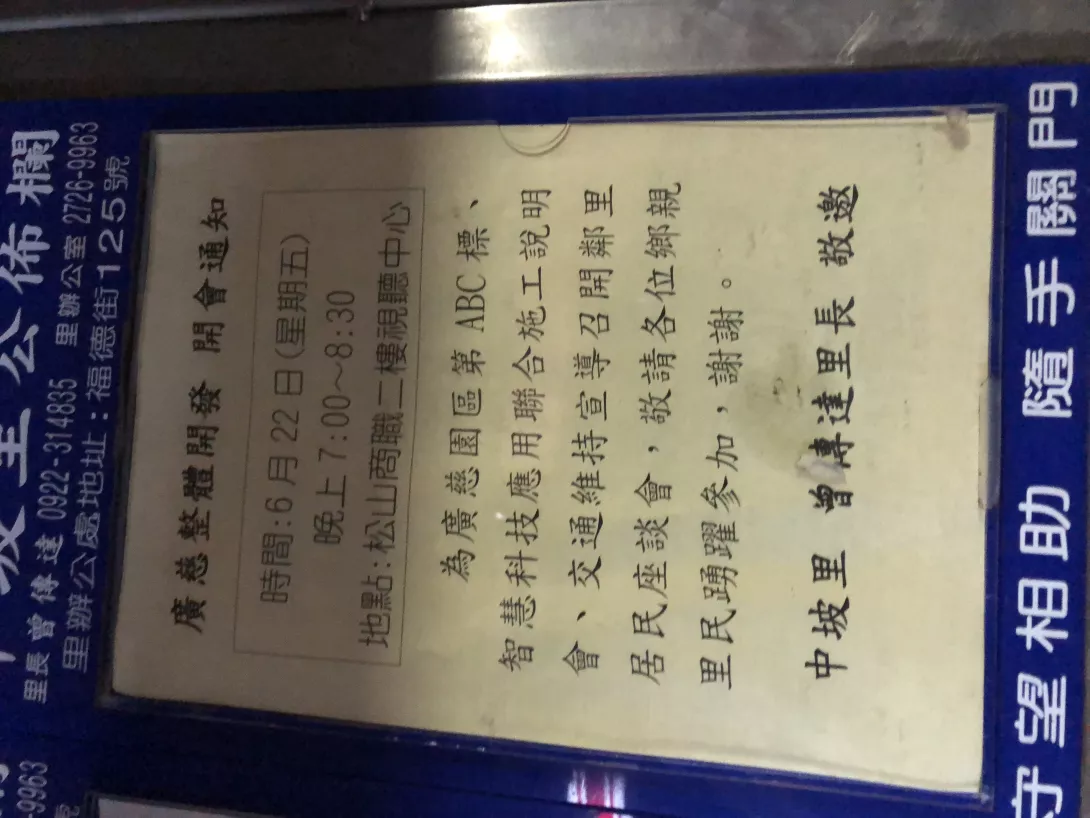 坡里公佈欄
里長曾傳達 0922-314835 里辦公室 2726-9963
里辦公處地址:福德街125號
廣慈整體開發 開會通知
時間:6月22日(星期五)
晚上7:00~8:30
地點:松山商職二樓視聽中心
為廣慈園區第ABC標、
智慧科技應用聯合施工說明
會、交通維持宣導召開鄰里
居民座談會,敬請各位鄉親
里民踴躍參加,謝謝。
中坡里 曾傳達里長 敬邀
守望相助 隨手關門
9963
號